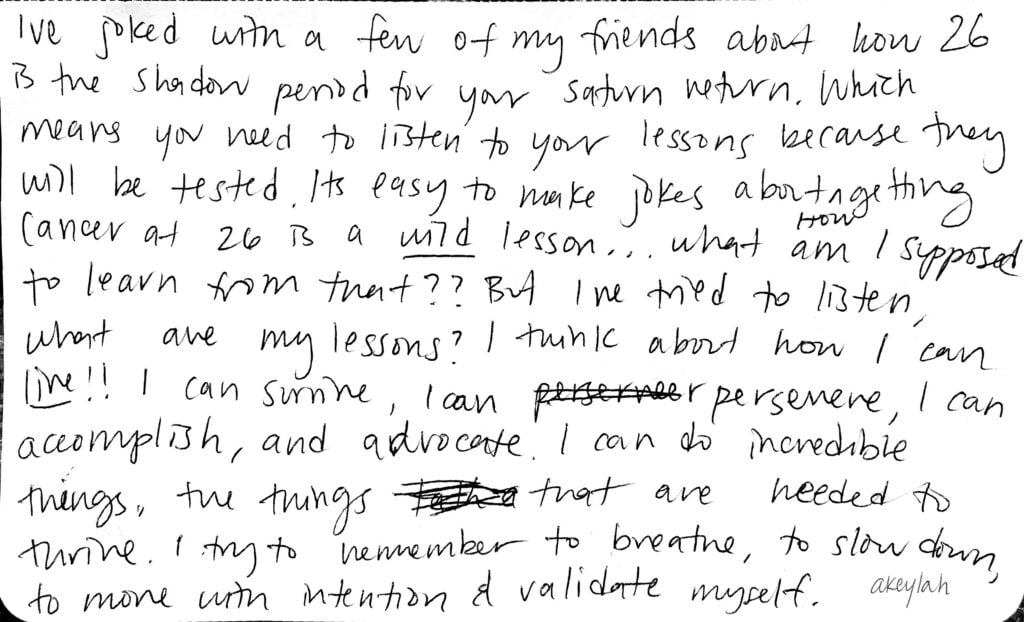 I've joked with a few of my friends about how 26
is the shadow period for your saturn return. Which
means you need to listen to your lessons because they
will be tested. Its easy to make jokes about getting
Cancer at 26 is a wild lesson... what How am I supposed
to learn from that?? But I've tried to listen,
what are my lessons? I think about how I can
live!! I can survive, I can perserveer persevere, I can
accomplish, and advocate. I can do incredible
things, the things that are needed to
thrive. I try to remember to breathe, to slow down,
to move with intention & validate myself. akeylah